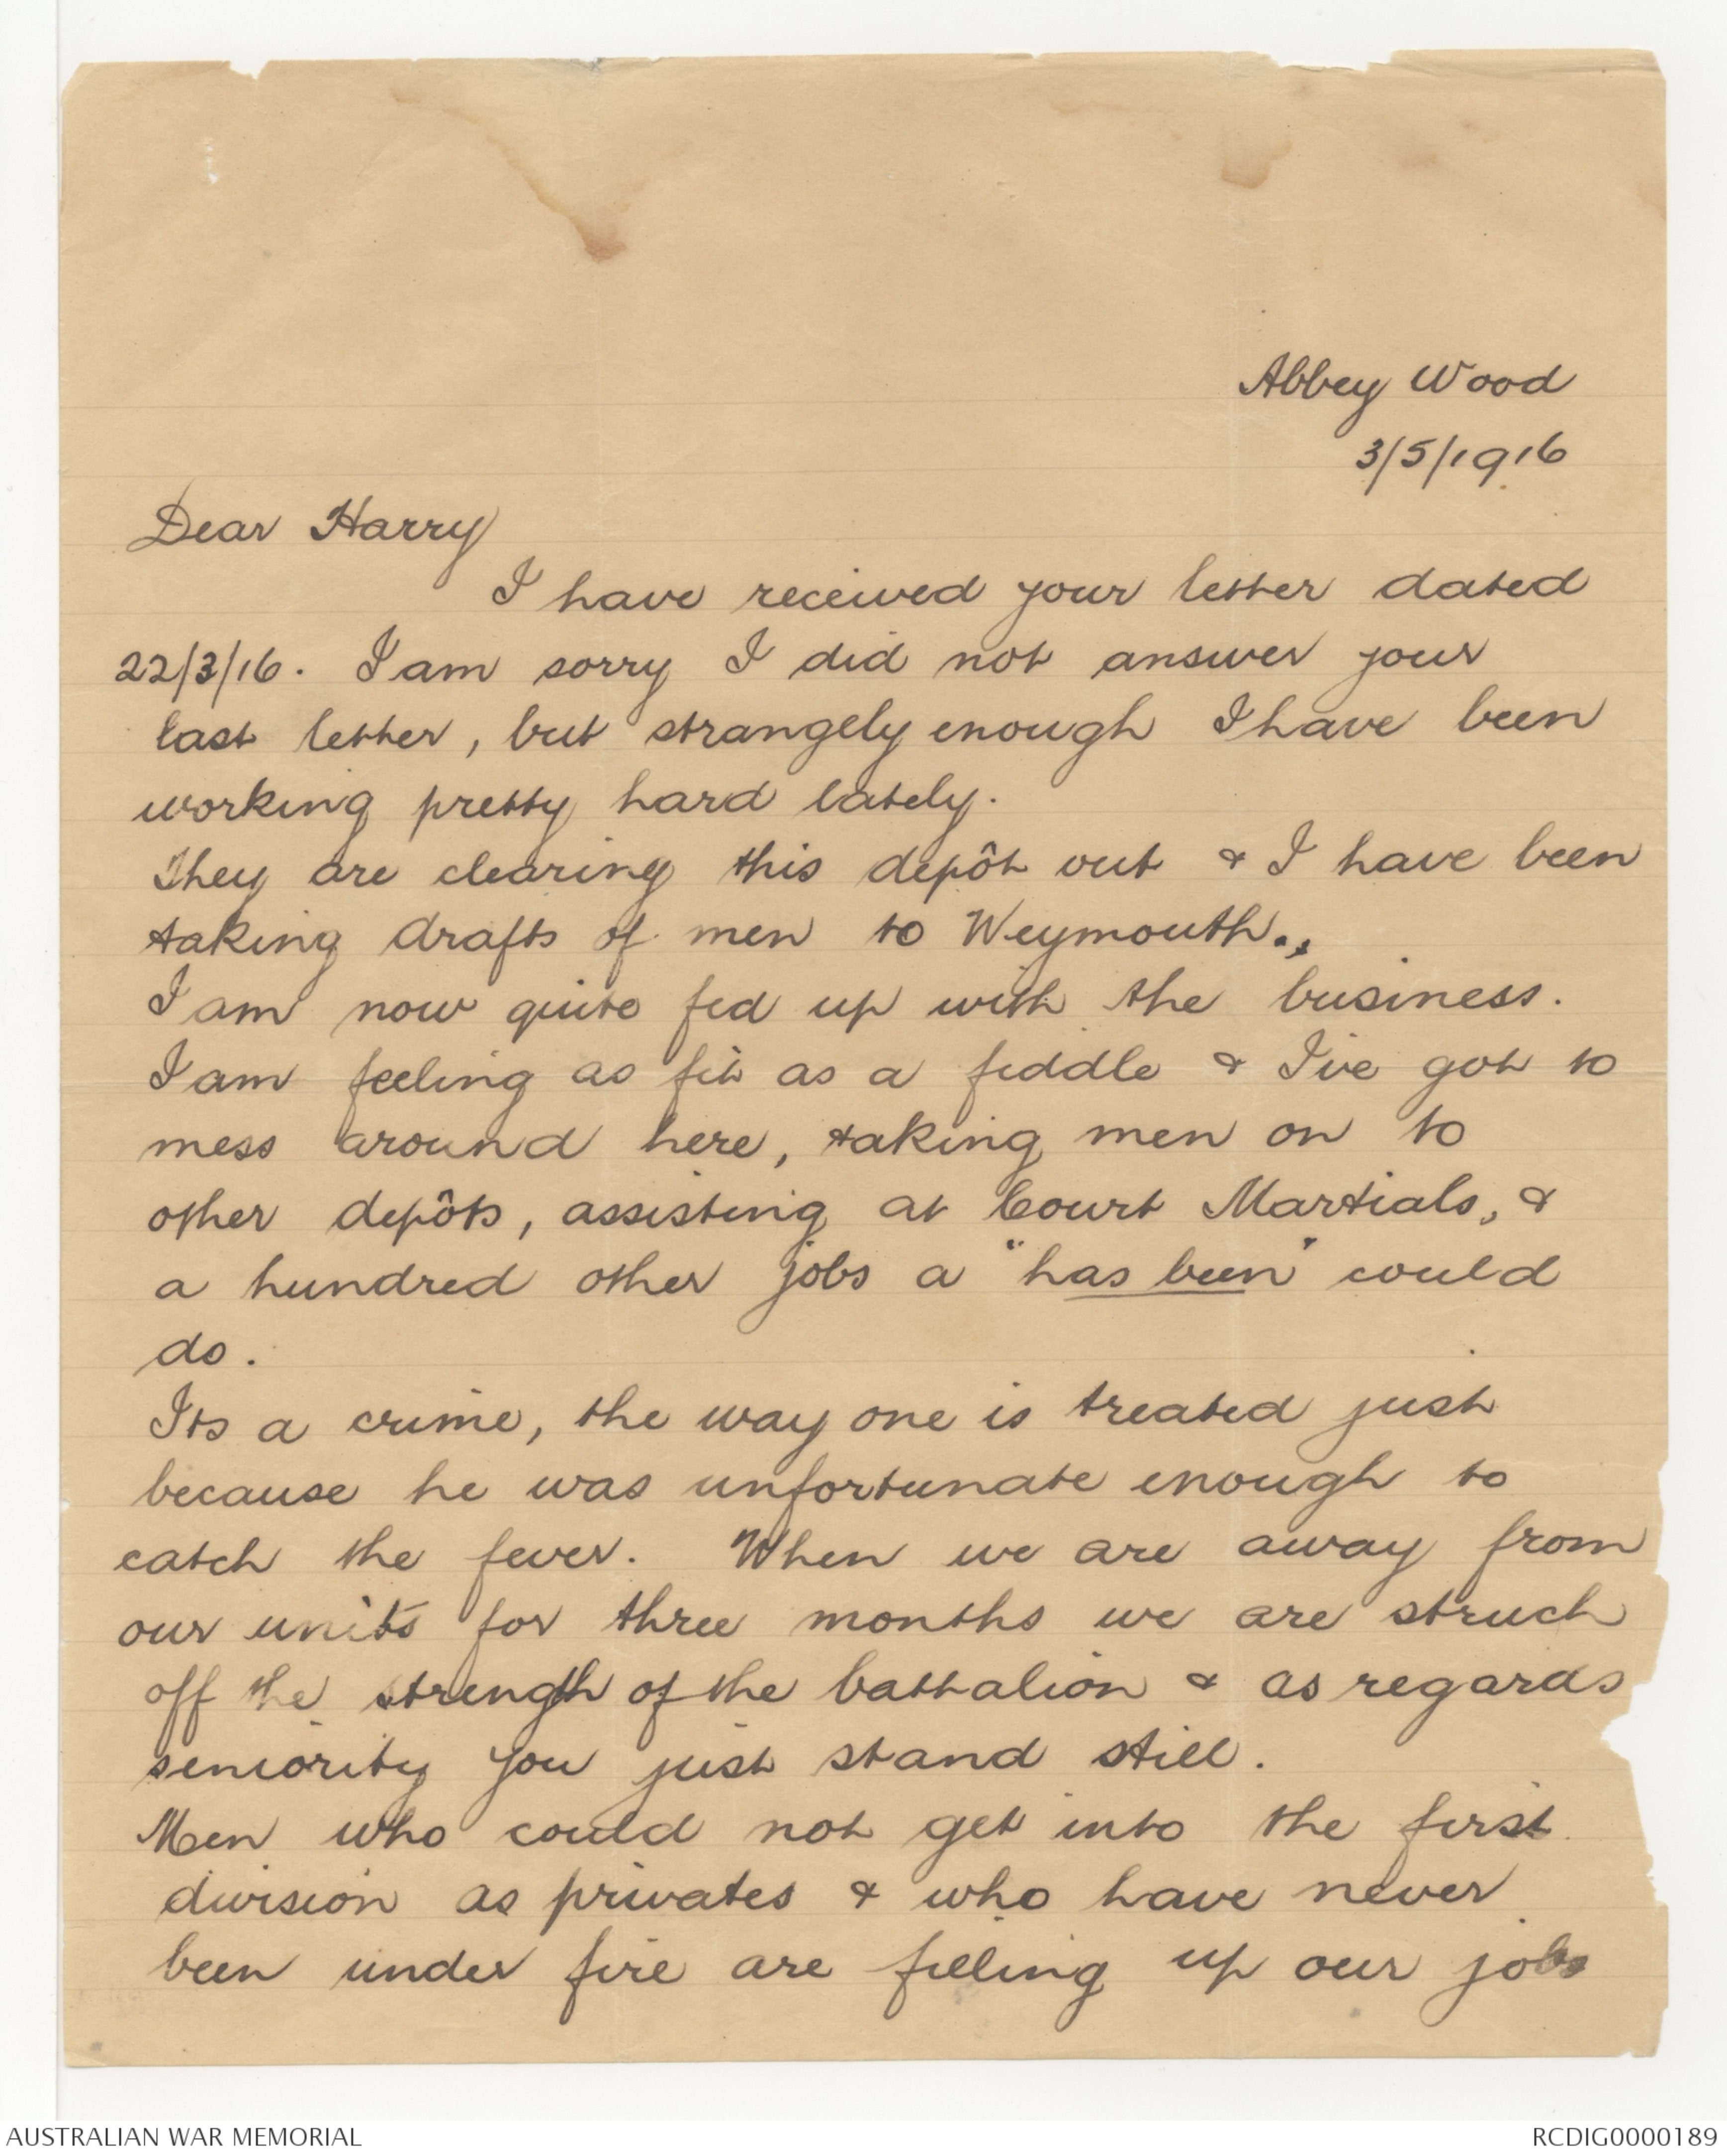 Abbey Wood
3/5/1916
Dear Harry
I have received your letter dated
22/3/16. I am sorry I did not answer your
last letter, but strangely enough I have been
working pretty hard lately.
They are clearing this depôt out & I have been
taking drafts of men to Weymouth.,
I am now quite fed up with the business.
I am feeling as fit as a fiddle & I've got to
mess around here, taking men on to
other depôts, assisting at Court Martials, &
a hundred other jobs a "has been" could
do.
Its a crime, the way one is treated just
because he was unfortunate enough to
catch the fever. When we are away from
our units for three months we are struck
off the strength of the battalion & as regards
seniority you just stand still.
Men who could not get into the first
division as privates & who have never
been under fire are filling up our jobs
AUSTRALIAN WAR MEMORIAL
RCDIG0000189